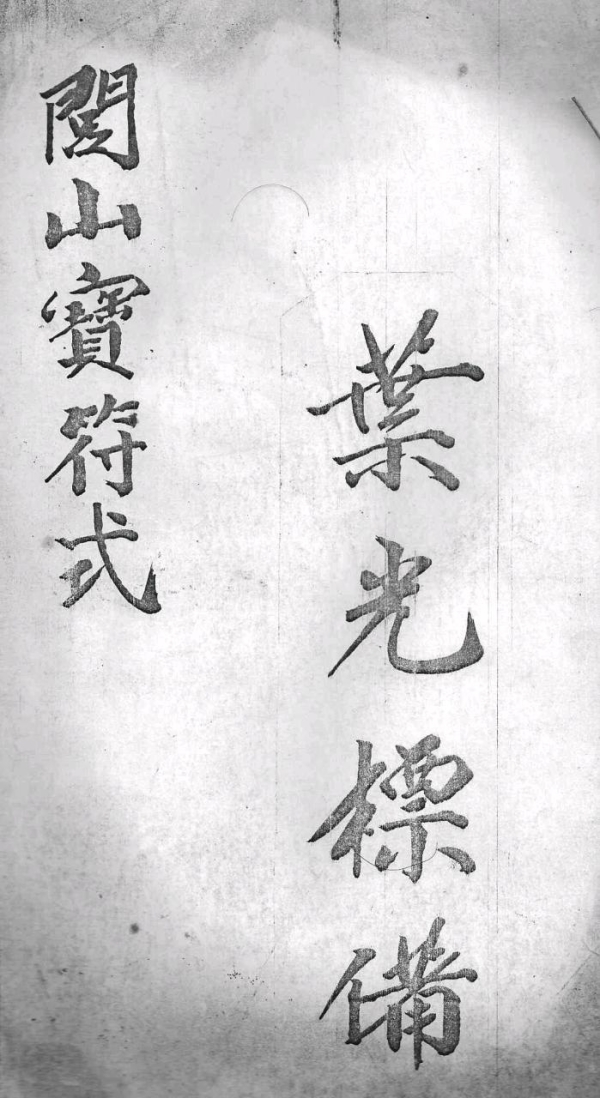 葉光標備
閭山寶符式